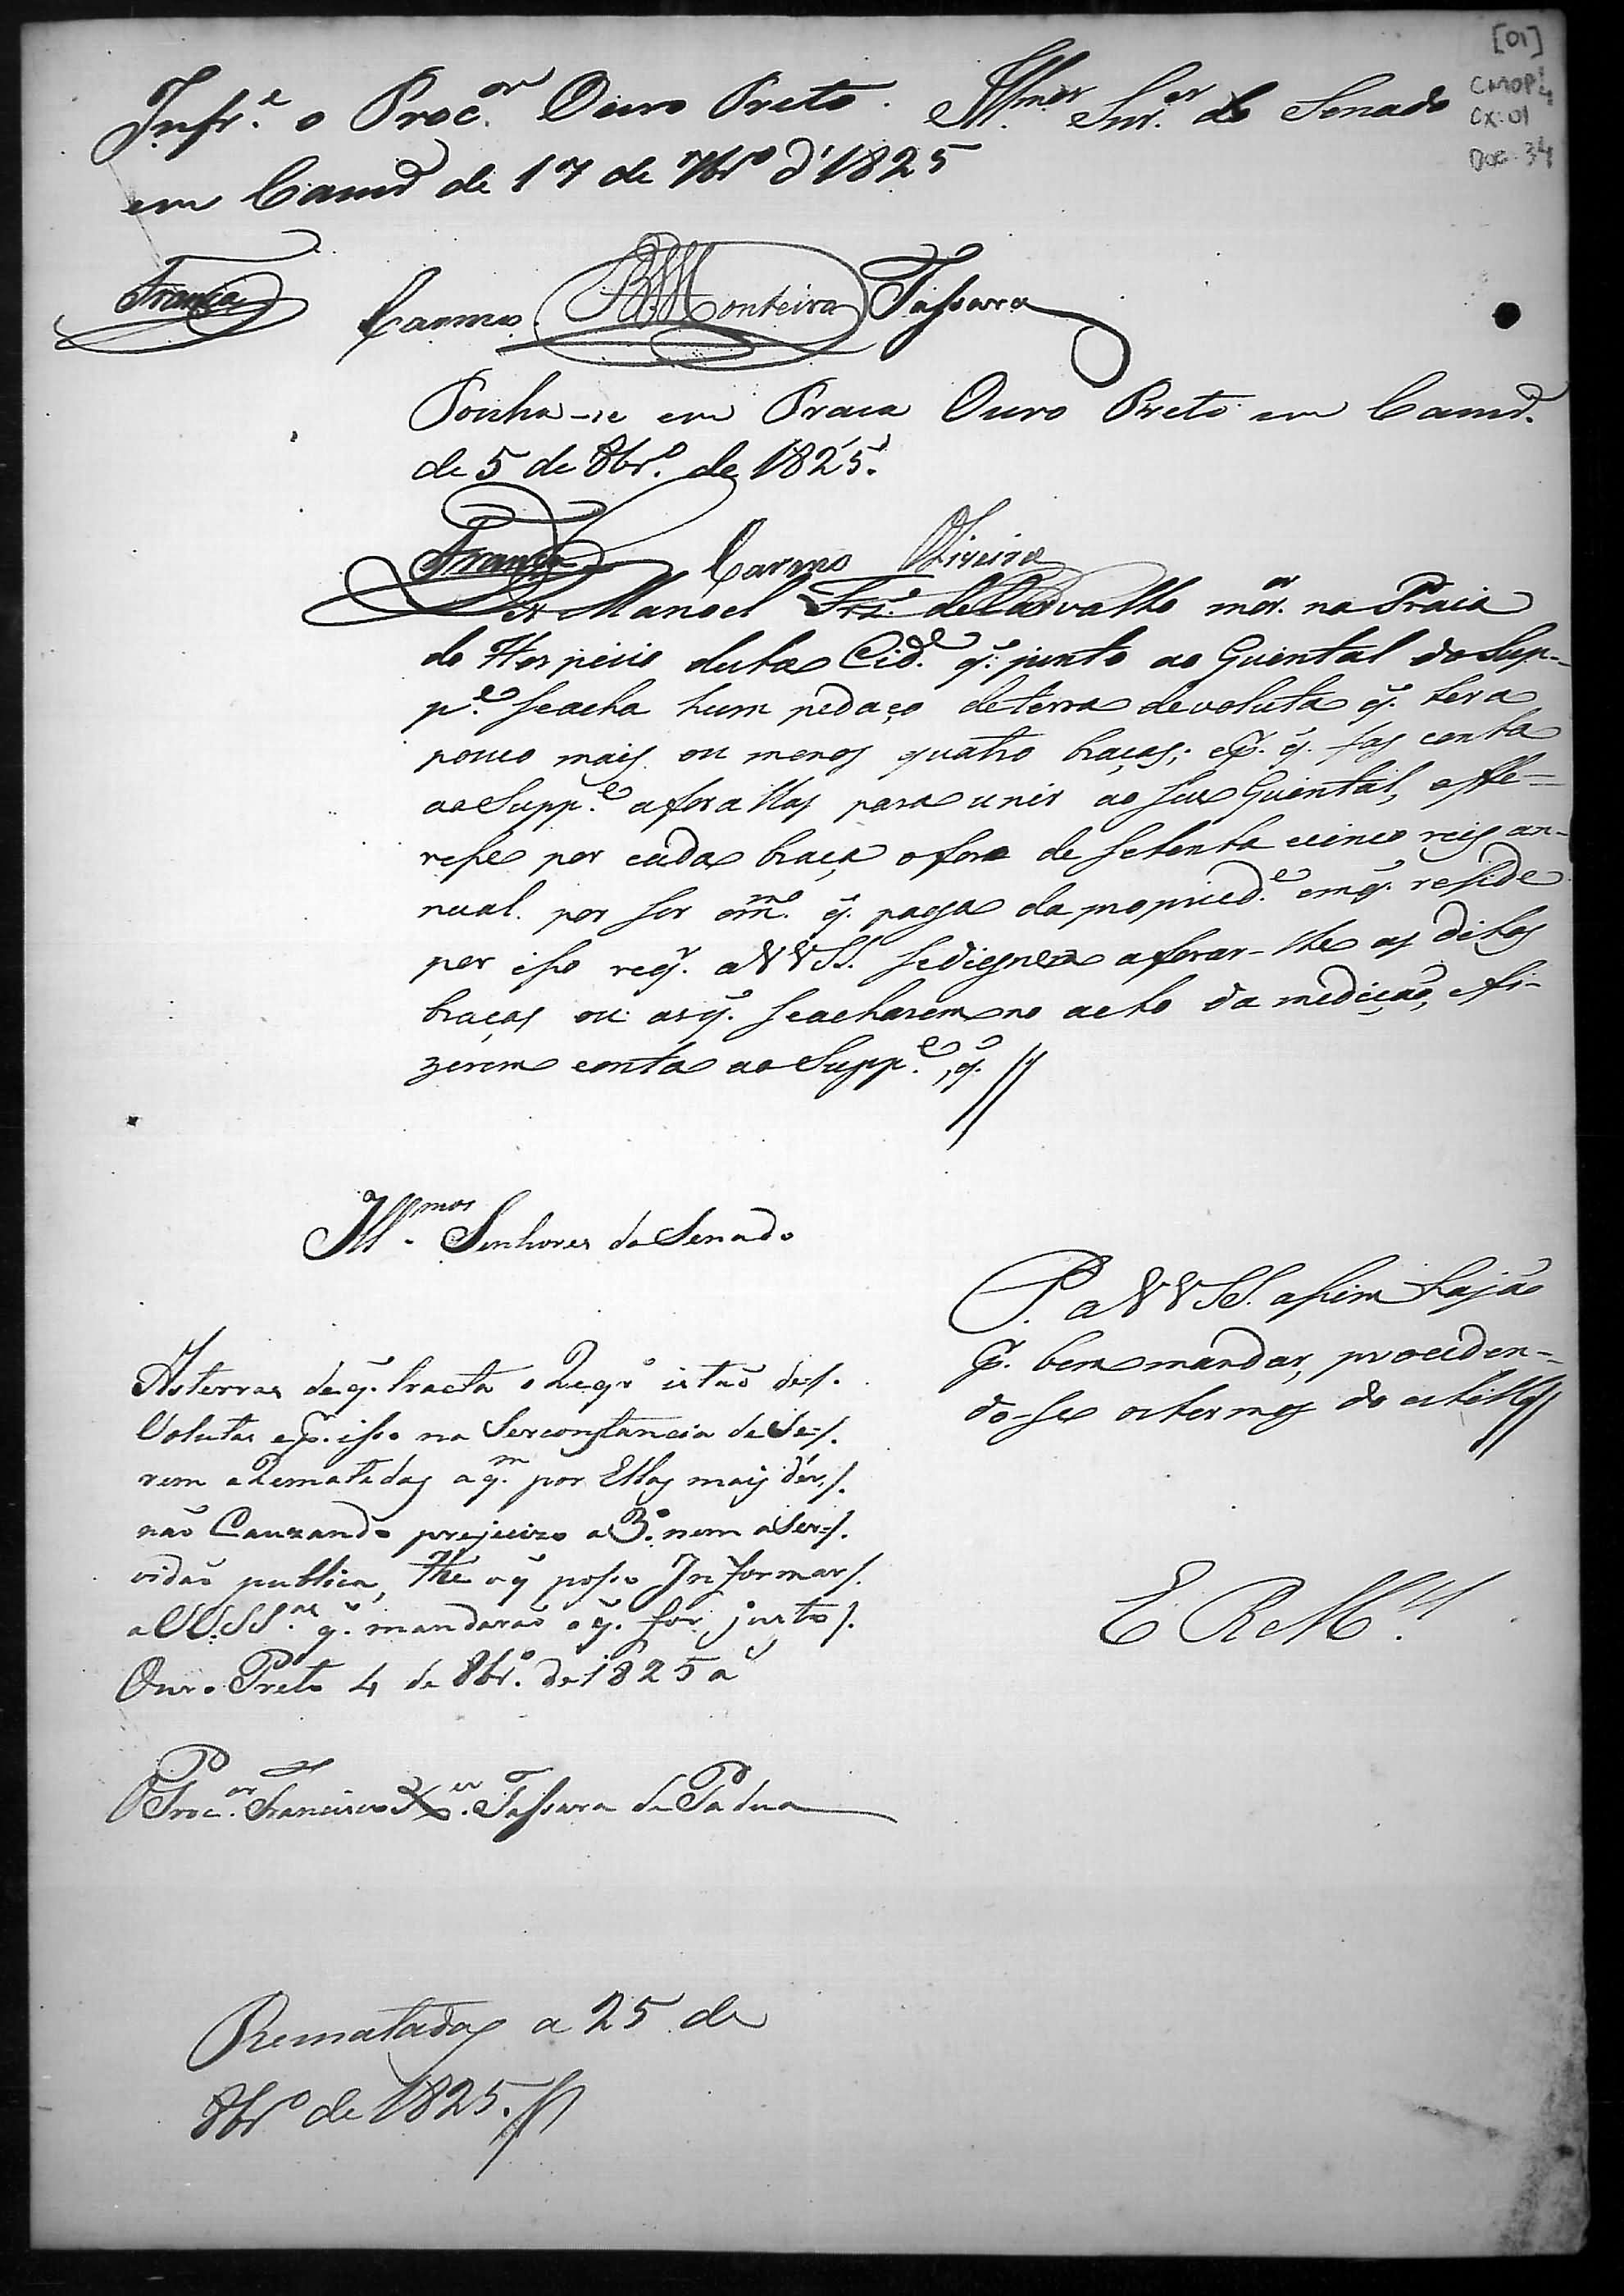 [01]
CMOP 4
CX: 01
Doc: 34
Infr.e o Proc.or Ouro Preto.
Ill.mos Snr.es do Senado
em Camr.a de 17 de 7br.o d'1825
França Carmo Monteiro Tassara
Ponha-se em Praca Ouro Preto em Camr.a
de 5 de 8br.o de 1825.
França Carmo Oliveira
Dis Manoel Frz.' de Carvalho mor.or na Praia
do Hospicio desta Cid.e q. junto ao Quintal do Sup-
p.e seacha hum pedaço deterra devoluta q. tera
pouco mais ou menos quatro braças; e p. q. fas conta
ao Supp.e aforallas para unir ao seu Quintal, offe-
resse por cada braça oforo de setenta ecinco reis an-
nual. por ser om.mo q. paga da propried.e emq. reside
por isso req. a VVSS. sedignem aforar-lhe as ditas
braças ou asq. seacharem no acto da medição, efi-
zerem conta ao Supp.e, q.
Ill.mos Senhores do Senado
P. a VVSS. assim hajão
p. bem mandar, proceden-
do-se ostermos do estillo
E R M.ce
As terras de q. tracta o Reqr.o estão de-/.
Volutas e p. isso na Serconstancia de Se-/.
rem aRematadas a q.m por Ellas mais dér,/.
não Cauzando prejuizo a 3.o nem aSer-/.
vidão publica, He o q posso Informar/.
a VV.SS.as q. mandarão o q. for justo/.
Ouro Preto 4 de 8br.o de 1825 a
O Proc.or Francisco X.er Tassara de Padua
Rematadas a 25 de
8br.o de 1825.